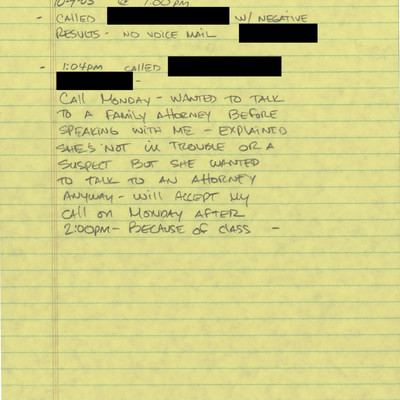 10-9-05 @ 1:00PM
- CALLED W/ NEGATIVE
RESULTS - NO VOICE MAIL
- 1:04PM CALLED
-
CALL MONDAY - WANTED TO TALK
TO A FAMILY ATTORNEY BEFORE
SPEAKING WITH ME - EXPLAINED
SHE'S NOT IN TROUBLE OR A
SUSPECT BUT SHE WANTED
TO TALK TO AN ATTORNEY
ANYWAY - WILL ACCEPT MY
CALL ON MONDAY AFTER
2:00PM - BECAUSE OF CLASS -